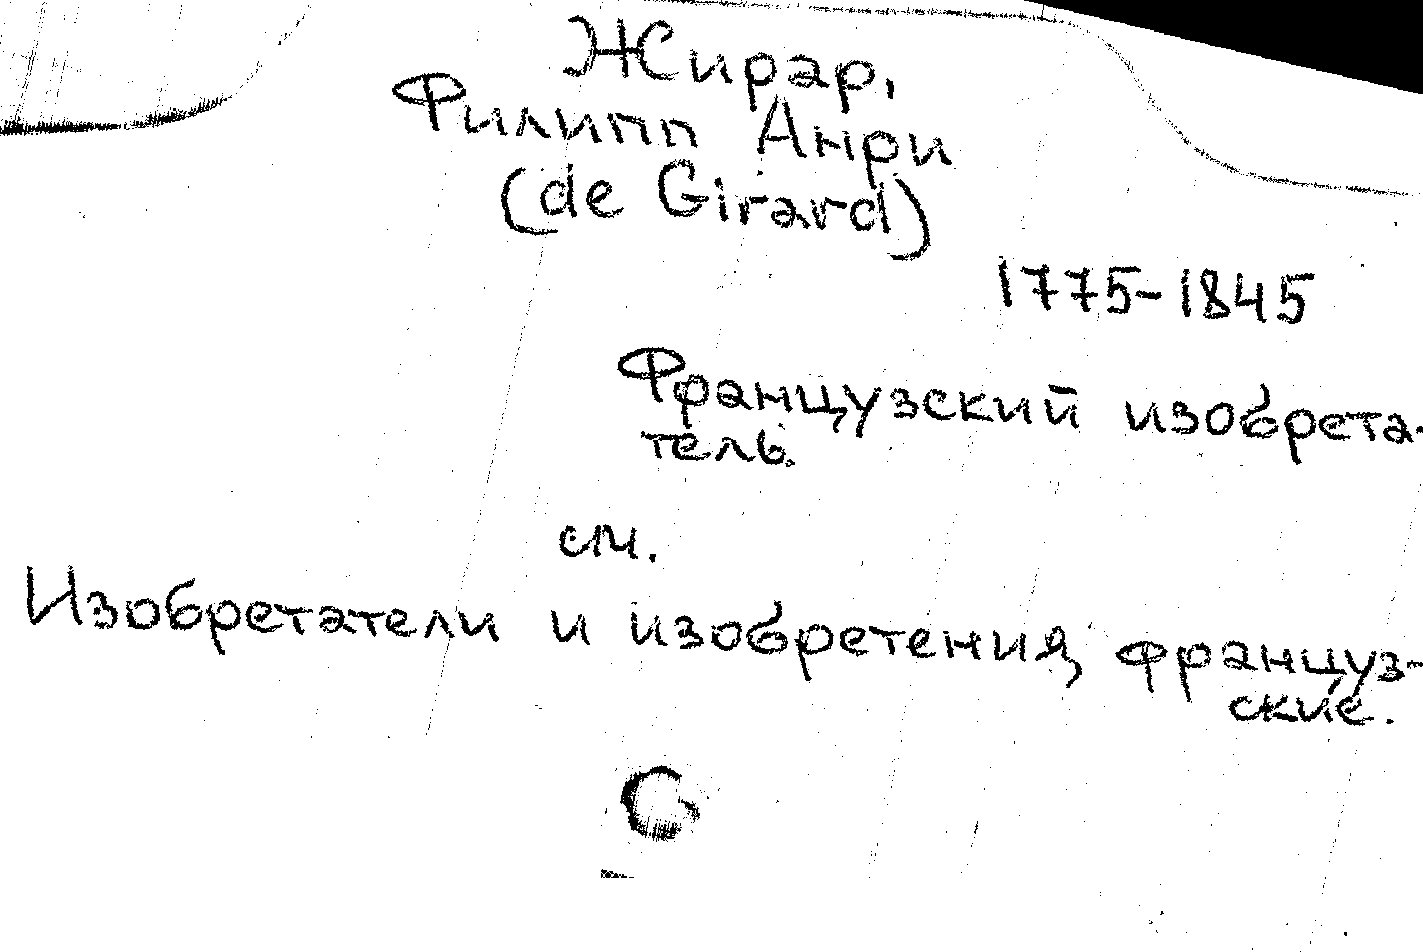 Жирар,
Филипп Анри
(de Girard)
1775-1845
Французский изобрета-
тель.
см.
Изобретатели и изобретения, француз-
ские.